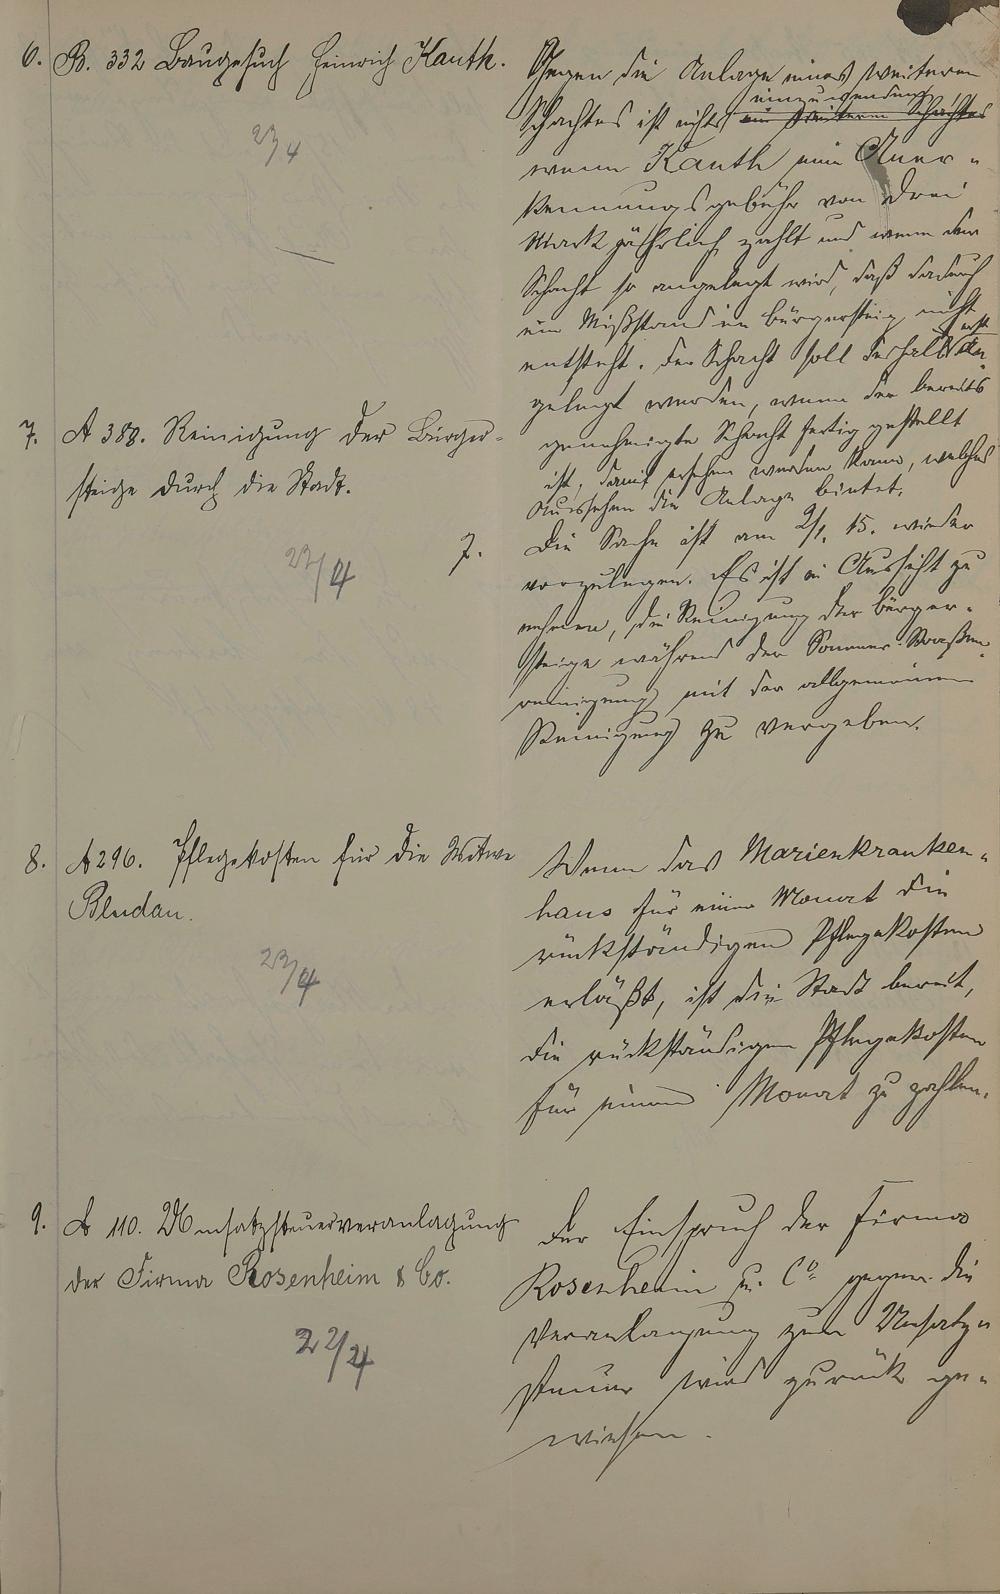 6. B. 332 Baugesuch Heinrich Kauth.
23/4
Gegen die Anlage eines weiteren
Schachtes ist nichts einzuwenden,
wenn Kauth eine Aner-
kennungsgebühr von drei
Mark jährlich zahlt und wenn der
Schacht so angelegt wird, daß dadurch
ein Mißstand im Bürgersteig nicht
entsteht. Der Schacht soll deshalb erst an-
gelegt werden, wenn der bereits
genehmigte Schacht fertig gestellt
ist, damit ersehen werden kann, welches
Aussehen die Anlage bietet.
7. A 388. Reinigung der Bürger-
steige durch die Stadt.
23/4
7. Die Sache ist am 2/1. 15. wieder
vorzulegen. Es ist in Aussicht zu
nehmen, die Reinigung der Bürger-
steige während der Sommer-Straßen-
reinigung mit der allgemeinen
Reinigung zu vergeben.
8. A 296. Pflegekosten für die Witwe
Bludau.
23/4
Wenn das Marienkranken-
haus für einen Monat die
rückständigen Pflegekosten
erläßt, ist die Stadt bereit,
die rückständigen Pflegekosten
für einen Monat zu zahlen.
9. A 110. Umsatzsteuerveranlagung
der Firma Rosenheim & Co.
22/4
Der Einspruch der Firma
Rosenheim u. Co gegen die
Veranlagung zum Umsatz-
steuer wird zurück ge-
wiesen.